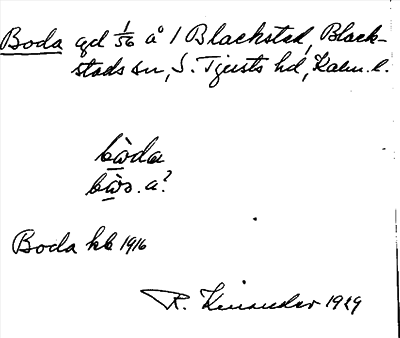 Boda gd 1/56 å 1 Blackstad, Black-
stads sn, S. Tjusts hd, Kalm. l.
bὼda
bὼs. a?
Boda kb 1916
R. Kinander 1929